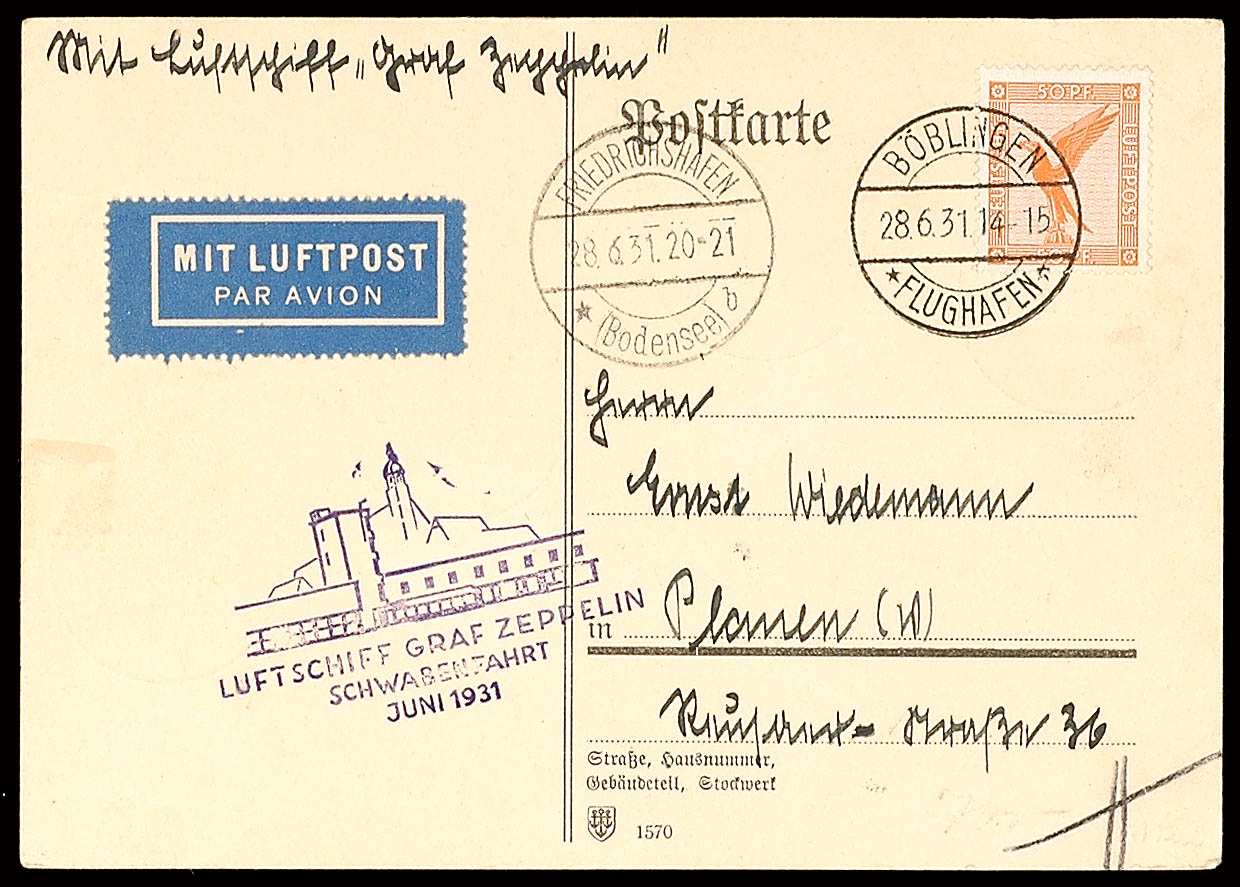 Mit Luftschiff „Graf Zeppelin"
Postkarte
50 PF.
LUFTPOST
BÖBLINGEN
28.6.31.14-15
* FLUGHAFEN *
FRIEDRICHSHAFEN
28.6.31.20-21
* (Bodensee) b
MIT LUFTPOST
PAR AVION
Herrn
Ernst Wiedemann
in Planen (V)
Straße 36
LUFTSCHIFF GRAF ZEPPELIN
SCHWABENFAHRT
JUNI 1931
Straße, Hausnummer,
Gebäudeteil, Stockwerk
1570